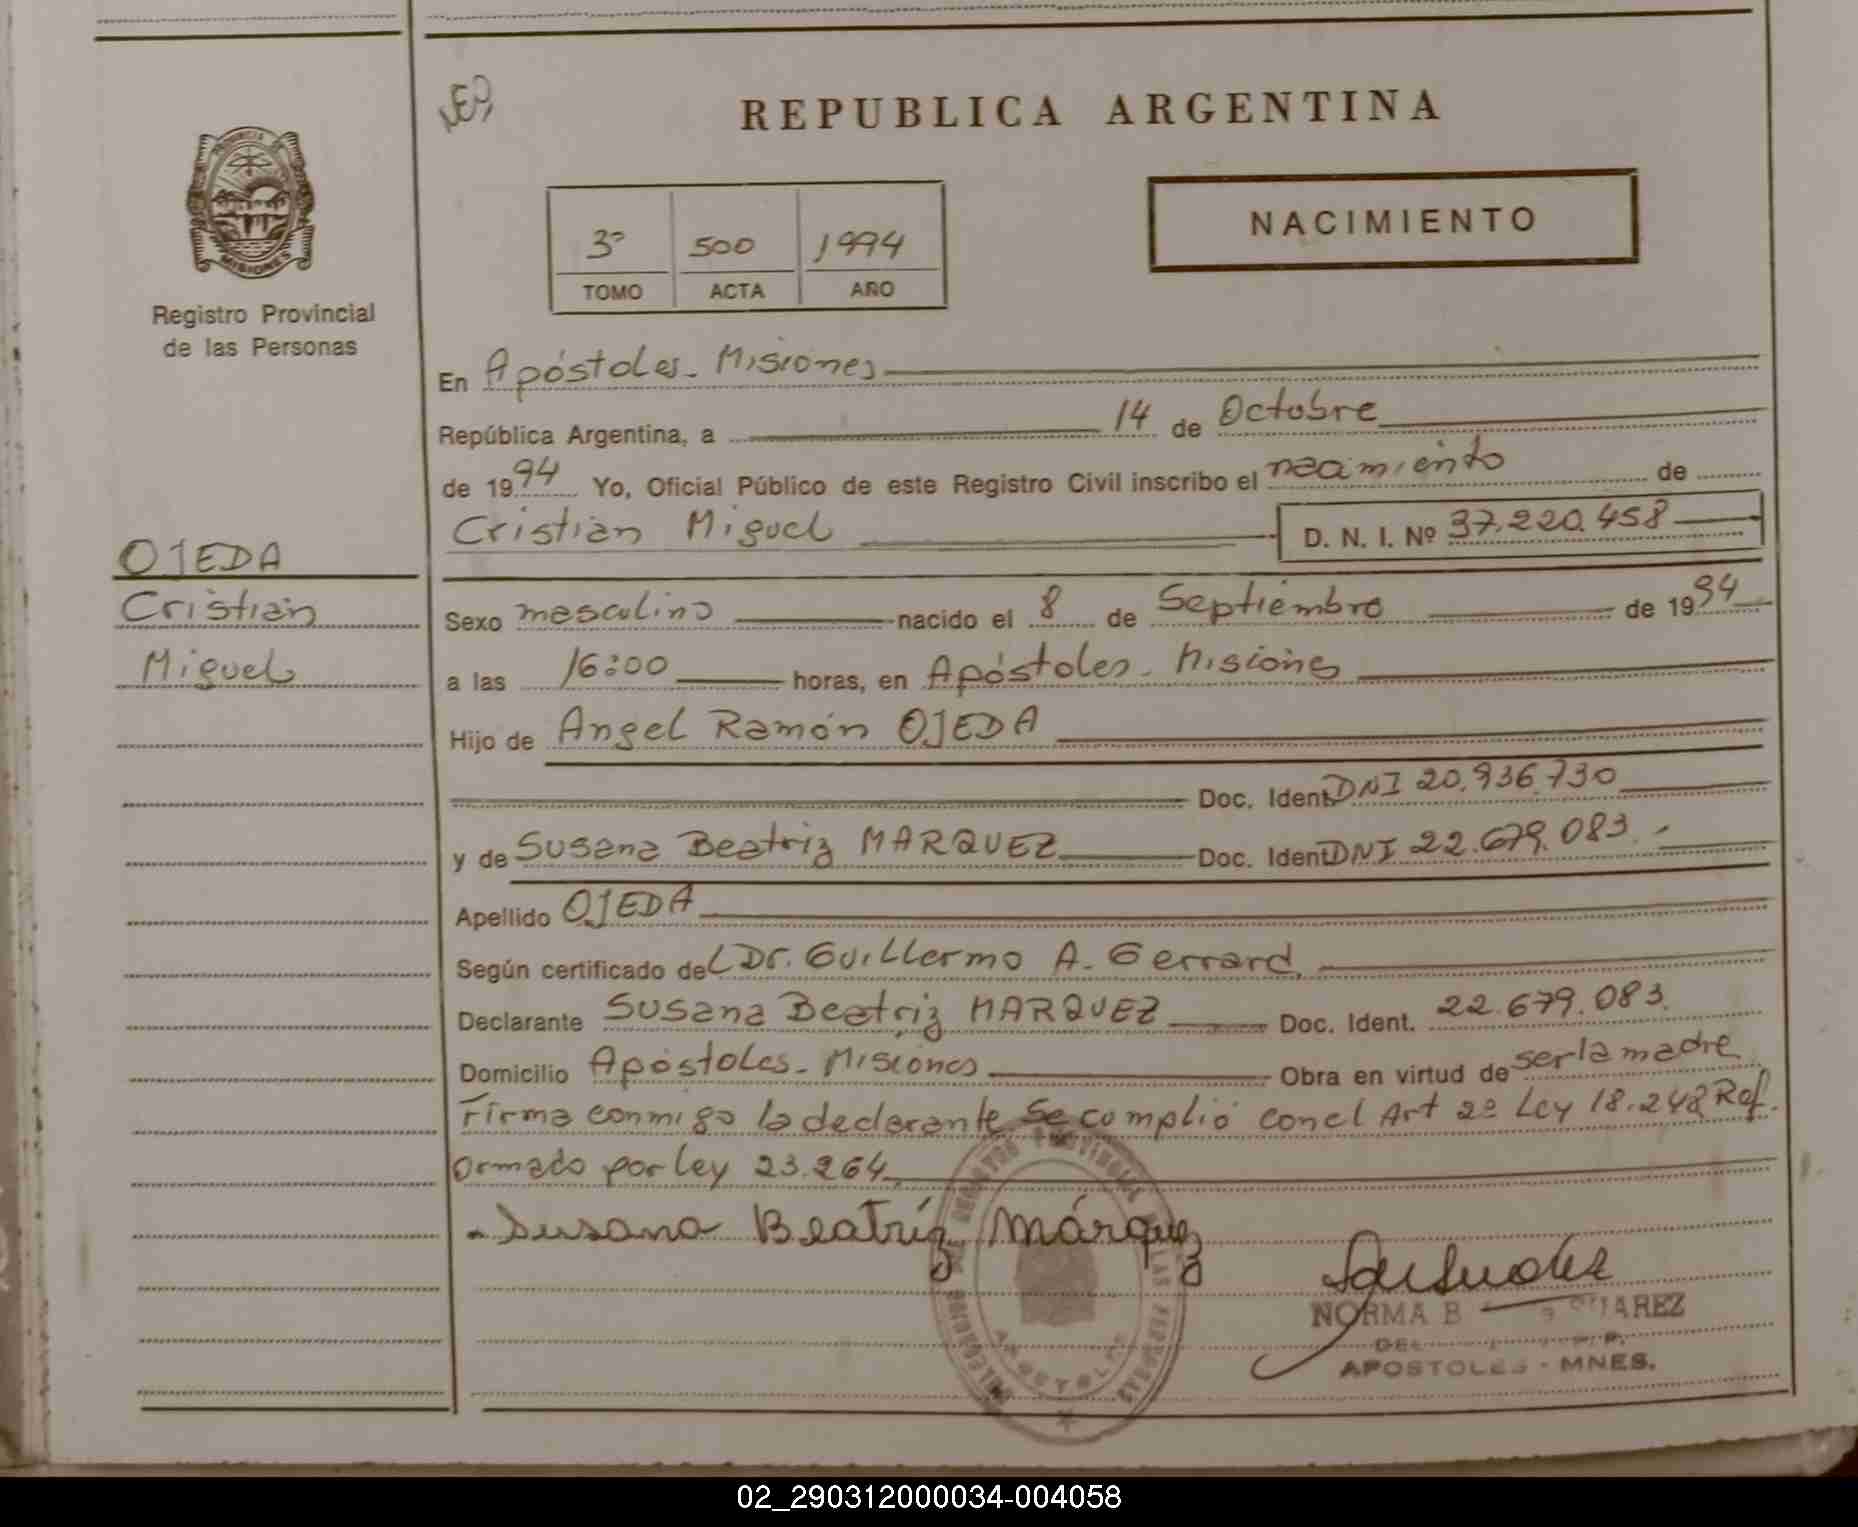 REPUBLICA ARGENTINA
PROVINCIA DE
MISIONES
Registro Provincial
de las Personas
3º 500 1994
TOMO ACTA AÑO
NACIMIENTO
En Apóstoles - Misiones
República Argentina, a 14 de Octubre
de 1994 Yo, Oficial Público de este Registro Civil inscribo el nacimiento de
Cristian Miguel D. N. I. Nº 37.220.458
OJEDA
Cristian
Miguel
Sexo masculino nacido el 8 de Septiembre de 1994
a las 16:00 horas, en Apóstoles - Misiones
Hijo de Angel Ramón OJEDA
Doc. Ident DNI 20.936.730
y de Susana Beatriz MARQUEZ Doc. Ident DNI 22.679.083.-
Apellido OJEDA
Según certificado del Dr. Guillermo A. Gerrard.
Declarante Susana Beatriz MARQUEZ Doc. Ident. 22.679.083.
Domicilio Apóstoles - Misiones Obra en virtud de ser la madre
Firma conmigo la declarante Se cumplió con el Art 2º Ley 18.248 Ref.
ormado por ley 23.264
Susana Beatríz Márquez
NORMA B SUAREZ
APOSTOLES - MNES.
02_290312000034-004058